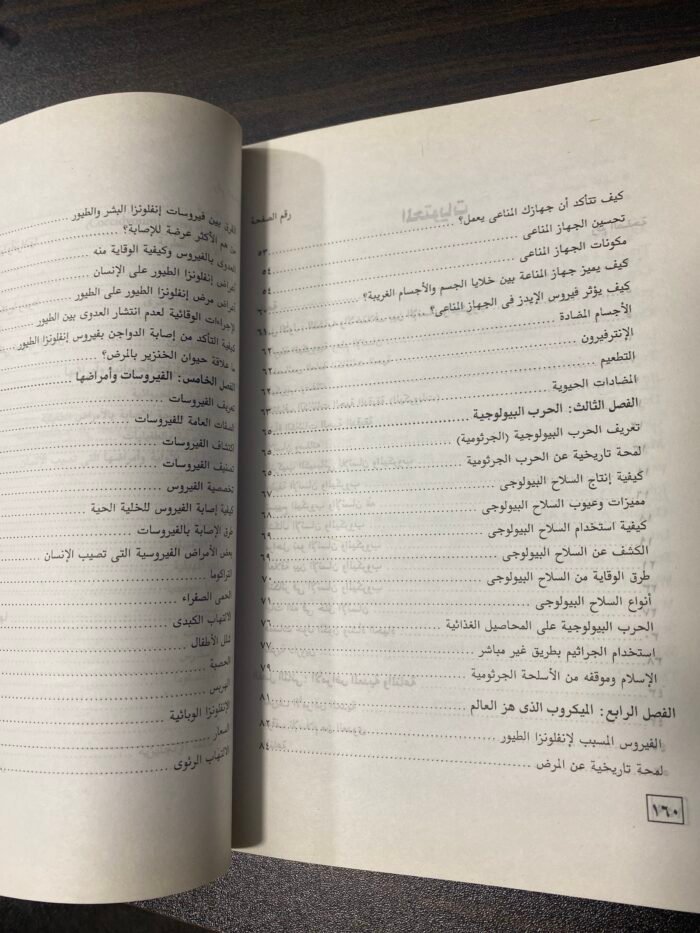 رقم الصفحة
كيف تتأكد أن جهازك المناعى يعمل؟ ٥٣
تحسين الجهاز المناعى ٥٤
مكونات الجهاز المناعى ٥٤
كيف يميز جهاز المناعة بين خلايا الجسم والأجسام الغريبة؟ ٦٠
كيف يؤثر فيروس الإيدز فى الجهاز المناعى؟ ٦١
الأجسام المضادة ٦٢
الإنترفيرون ٦٢
التطعيم ٦٢
المضادات الحيوية ٦٣
الفصل الثالث: الحرب البيولوجية ٦٥
تعريف الحرب البيولوجية (الجرثومية) ٦٥
لمحة تاريخية عن الحرب الجرثومية ٦٥
كيفية إنتاج السلاح البيولوجى ٦٧
مميزات وعيوب السلاح البيولوجى ٦٨
كيفية استخدام السلاح البيولوجى ٦٩
الكشف عن السلاح البيولوجى ٦٩
طرق الوقاية من السلاح البيولوجى ٧٠
أنواع السلاح البيولوجى ٧١
الحرب البيولوجية على المحاصيل الغذائية ٧٦
استخدام الجراثيم بطريق غير مباشر ٧٧
الإسلام وموقفه من الأسلحة الجرثومية ٧٩
الفصل الرابع: الميكروب الذى هز العالم ٨١
الفيروس المسبب لإنفلونزا الطيور ٨٢
لمحة تاريخية عن المرض ٨٤
١٦٠
الفرق بين فيروسات إنفلونزا البشر والطيور
من هم الأكثر عرضة للإصابة؟
العدوى بالفيروس وكيفية الوقاية منه
أعراض إنفلونزا الطيور على الإنسان
أعراض مرض إنفلونزا الطيور على الطيور
الإجراءات الوقائية لعدم انتشار العدوى بين الطيور
كيفية التأكد من إصابة الدواجن بفيروس إنفلونزا الطيور
ما علاقة حيوان الخنزير بالمرض؟
الفصل الخامس: الفيروسات وأمراضها
تعريف الفيروسات
الصفات العامة للفيروسات
اكتشاف الفيروسات
تصنيف الفيروسات
تخصصية الفيروس
كيفية إصابة الفيروس للخلية الحية
طرق الإصابة بالفيروسات
بعض الأمراض الفيروسية التى تصيب الإنسان
التراكوما
الحمى الصفراء
الالتهاب الكبدى
شلل الأطفال
الحصبة
الهربس
الإنفلونزا الوبائية
السعار
الالتهاب الرئوى